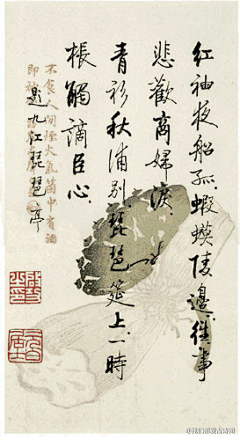 紅袖夜船孤蝦蟆陵邊往事
悲歡商婦淚
青衫秋浦別琵琶筵上一時
棖觸謫臣心
題九江琵琶亭
不食人間煙火氣箇中有酒